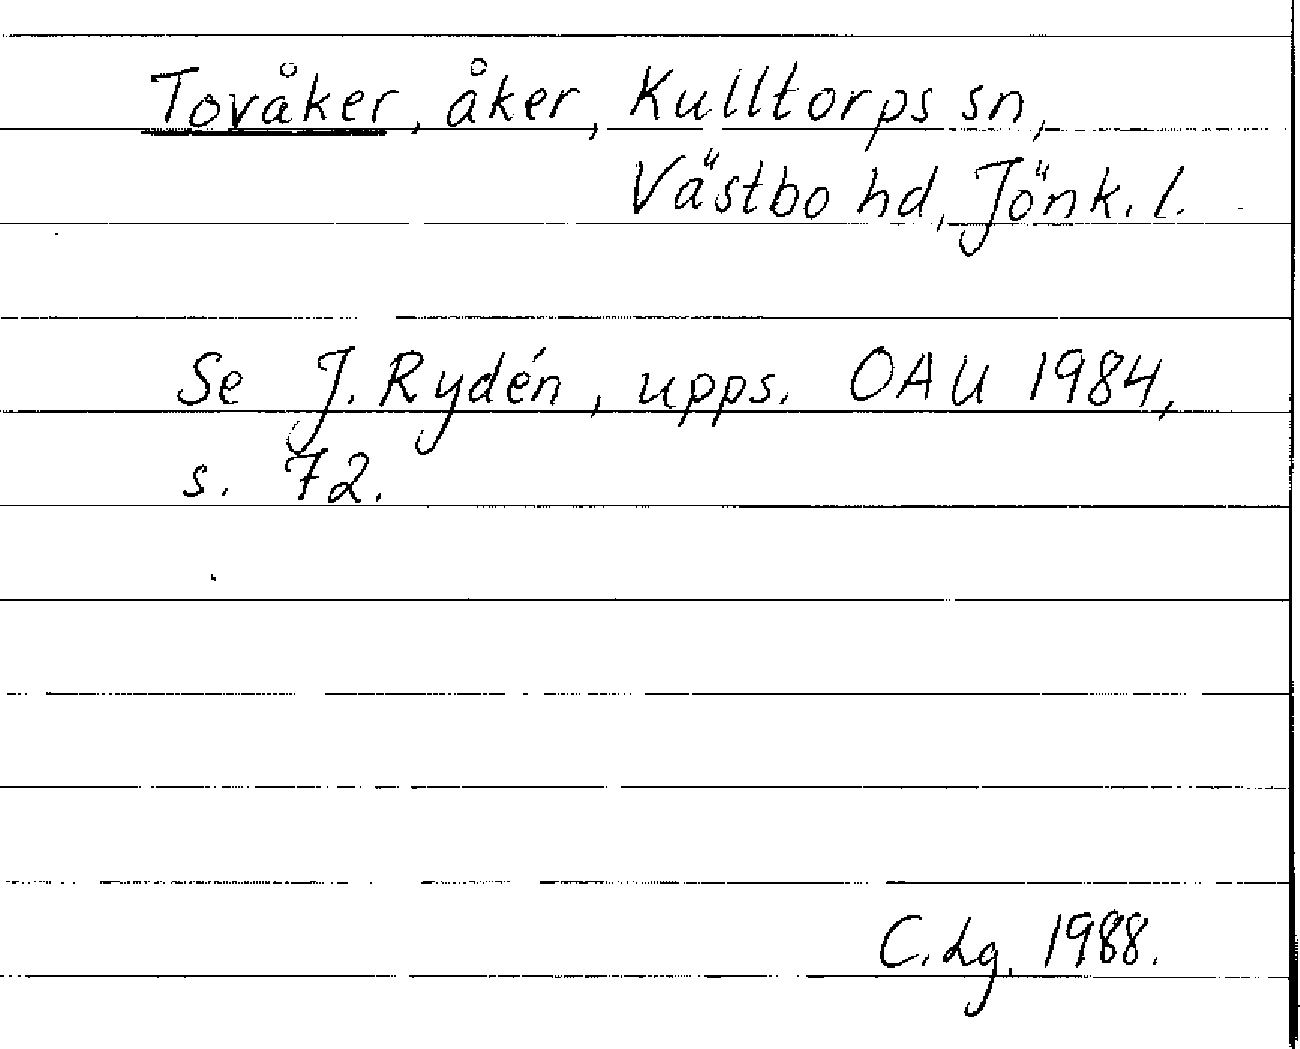 Tovåker, åker, Kulltorps sn,
Västbo hd, Jönk. l.
Se J. Rydén, upps. OAU 1984,
s. 72.
C. Lg. 1988.